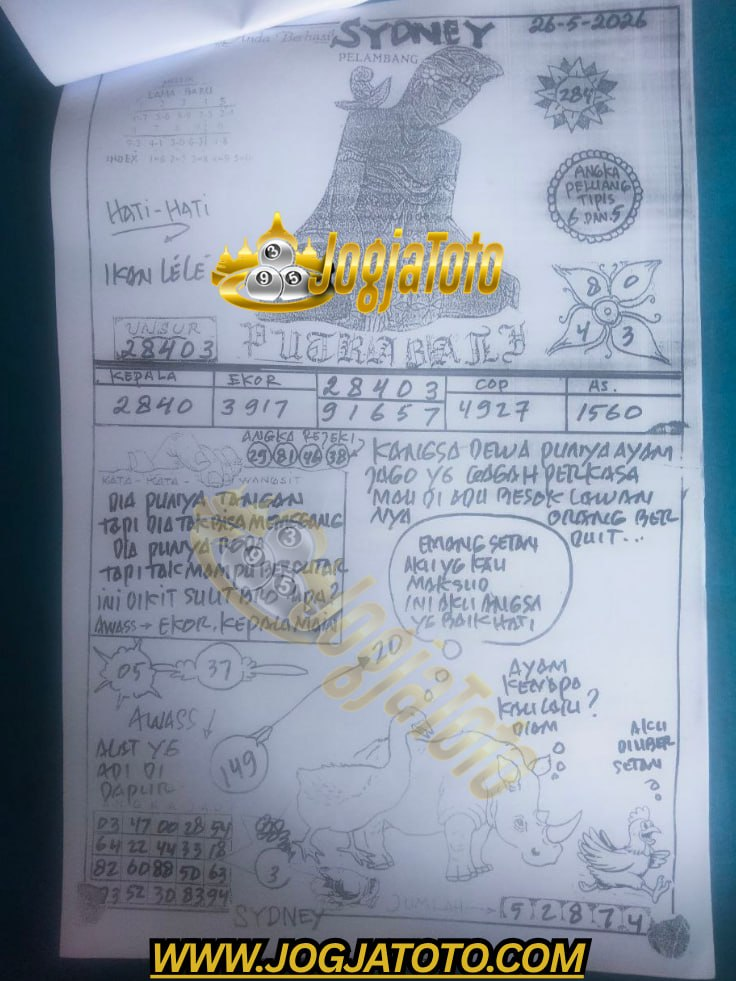 Anda Berhasil
SYDNEY
26-5-2026
PELAMBANG
LAMA BARU
INDEX
284
HATI-HATI
IKAN LELE
ANGKA
PELUANG
TIPIS
6 DAN 5
JogjaToto
3
9 5
8 0
4 3
UNSUR
28403
PUTRA BALI
KEPALA EKOR 28403 COP AS.
2840 3917 91657 4927 1560
ANGKA REJEKI
29 81 46 38
KATA-KATA - WANGSIT
DIA PUNYA TANGAN
TAPI DIA TAK BISA MEMEGANG
DIA PUNYA
TAPI TAK MAMPU BERPUTAR
INI DIKIT SULIT
AWASS → EKOR, KEPALA MAIN
KANGSA DEWA PUNYA AYAM
JAGO YG GAGAH PERKASA
MAU DI ADU BESOK LAWAN
NYA ORANG BER
DUIT...
EMANG SETAN
AKU YG KAU
MAKSUD
INI AKU ANGSA
YG BAIK HATI
JogjaToto
3
9 5
05 37
20
AWASS
149
ALAT YG
ADI DI
DAPUR
AYAM
KENAPA
KAU LARI ?
DIAM
AKU
DIUBER
SETAN
ANGKA JADI
03 47 00 28 54
64 22 44 33 18
82 60 88 50 63
73 52 30 83 94
3
SYDNEY
JUMLAH
5 2 8 7 4
WWW.JOGJATOTO.COM